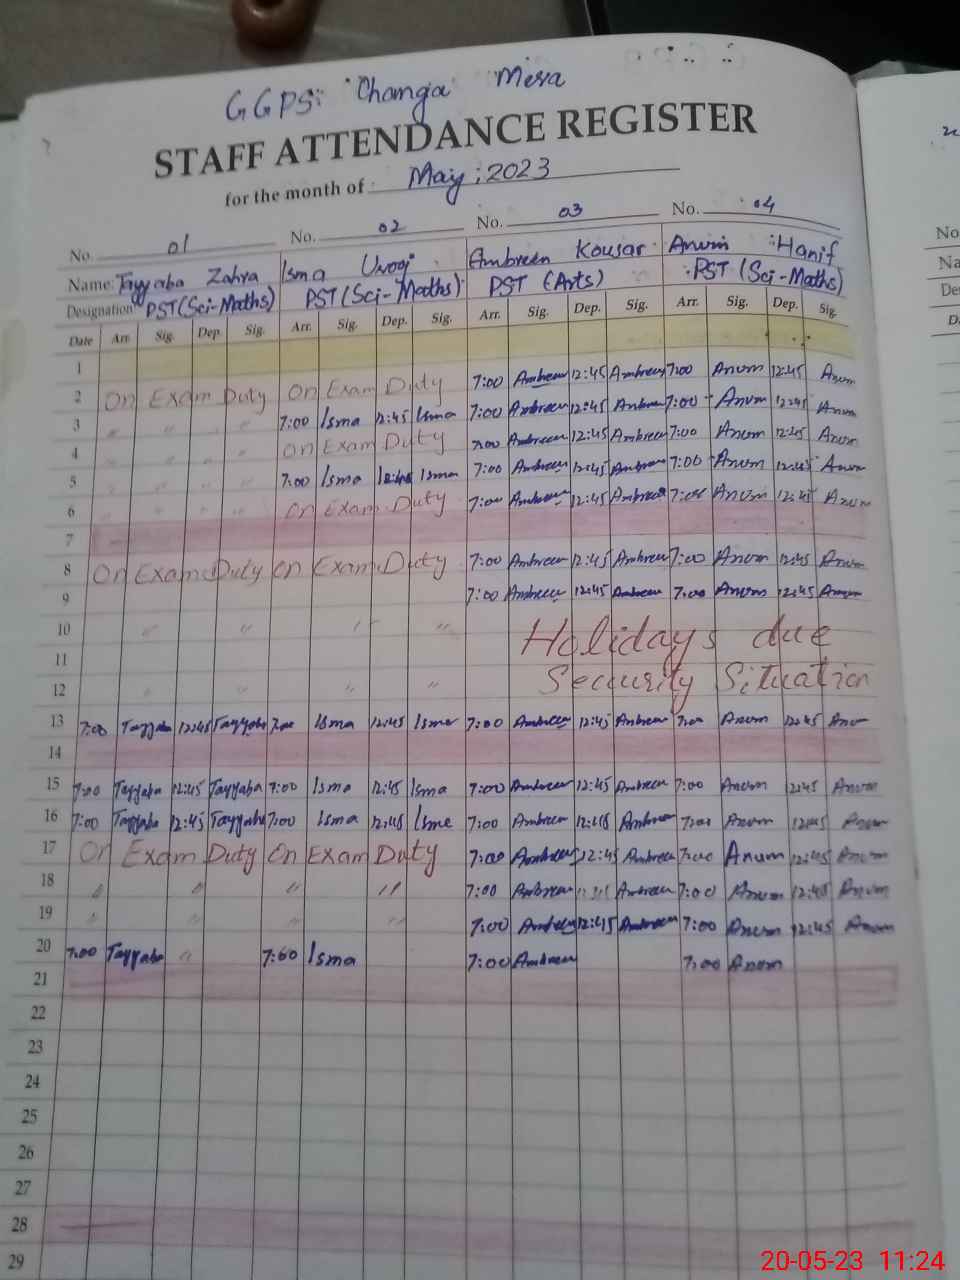 GGPS: Changa Mera
STAFF ATTENDANCE REGISTER
for the month of May ; 2023
No. 01 No. 02 No. 03 No. 04
Name: Tayyaba Zahra Isma Urooj Ambreen Kousar Anum Hanif
Designation PST (Sci-Maths) PST (Sci-Maths) PST (Arts) PST (Sci-Maths)
Date Arr. Sig. Dep. Sig. Arr. Sig. Dep. Sig. Arr. Sig. Dep. Sig. Arr. Sig. Dep. Sig.
1
2 On Exam Duty On Exam Duty 7:00 Ambreen 12:45 Ambreen 7:00 Anum 12:45 Anum
3 " " " 7:00 Isma 12:45 Isma 7:00 Ambreen 12:45 Ambreen 7:00 Anum 12:45 Anum
4 " " " " On Exam Duty 7:00 Ambreen 12:45 Ambreen 7:00 Anum 12:45 Anum
5 " " " " 7:00 Isma 12:45 Isma 7:00 Ambreen 12:45 Ambreen 7:00 Anum 12:45 Anum
6 " " " " On Exam Duty 7:00 Ambreen 12:45 Ambreen 7:00 Anum 12:45 Anum
7
8 On Exam Duty On Exam Duty 7:00 Ambreen 12:45 Ambreen 7:00 Anum 12:45 Anum
9 7:00 Ambreen 12:45 Ambreen 7:00 Anum 12:45 Anum
10 " " " " Holidays due
11
12 " " " " Secuurity Situation
13 7:00 Tayyaba 12:45 Tayyaba 7:00 Isma 12:45 Isma 7:00 Ambreen 12:45 Ambreen 7:00 Anum 12:45 Anum
14
15 7:00 Tayyaba 12:45 Tayyaba 7:00 Isma 12:45 Isma 7:00 Ambreen 12:45 Ambreen 7:00 Anum 12:45 Anum
16 7:00 Tayyaba 12:45 Tayyaba 7:00 Isma 12:45 Isma 7:00 Ambreen 12:45 Ambreen 7:00 Anum 12:45 Anum
17 On Exam Duty On Exam Duty 7:00 Ambreen 12:45 Ambreen 7:00 Anum 12:45 Anum
18 " " " " 7:00 Ambreen 12:45 Ambreen 7:00 Anum 12:45 Anum
19 " " " " 7:00 Ambreen 12:45 Ambreen 7:00 Anum 12:45 Anum
20 7:00 Tayyaba " 7:00 Isma 7:00 Ambreen 7:00 Anum
21
22
23
24
25
26
27
28
29
20-05-23 11:24